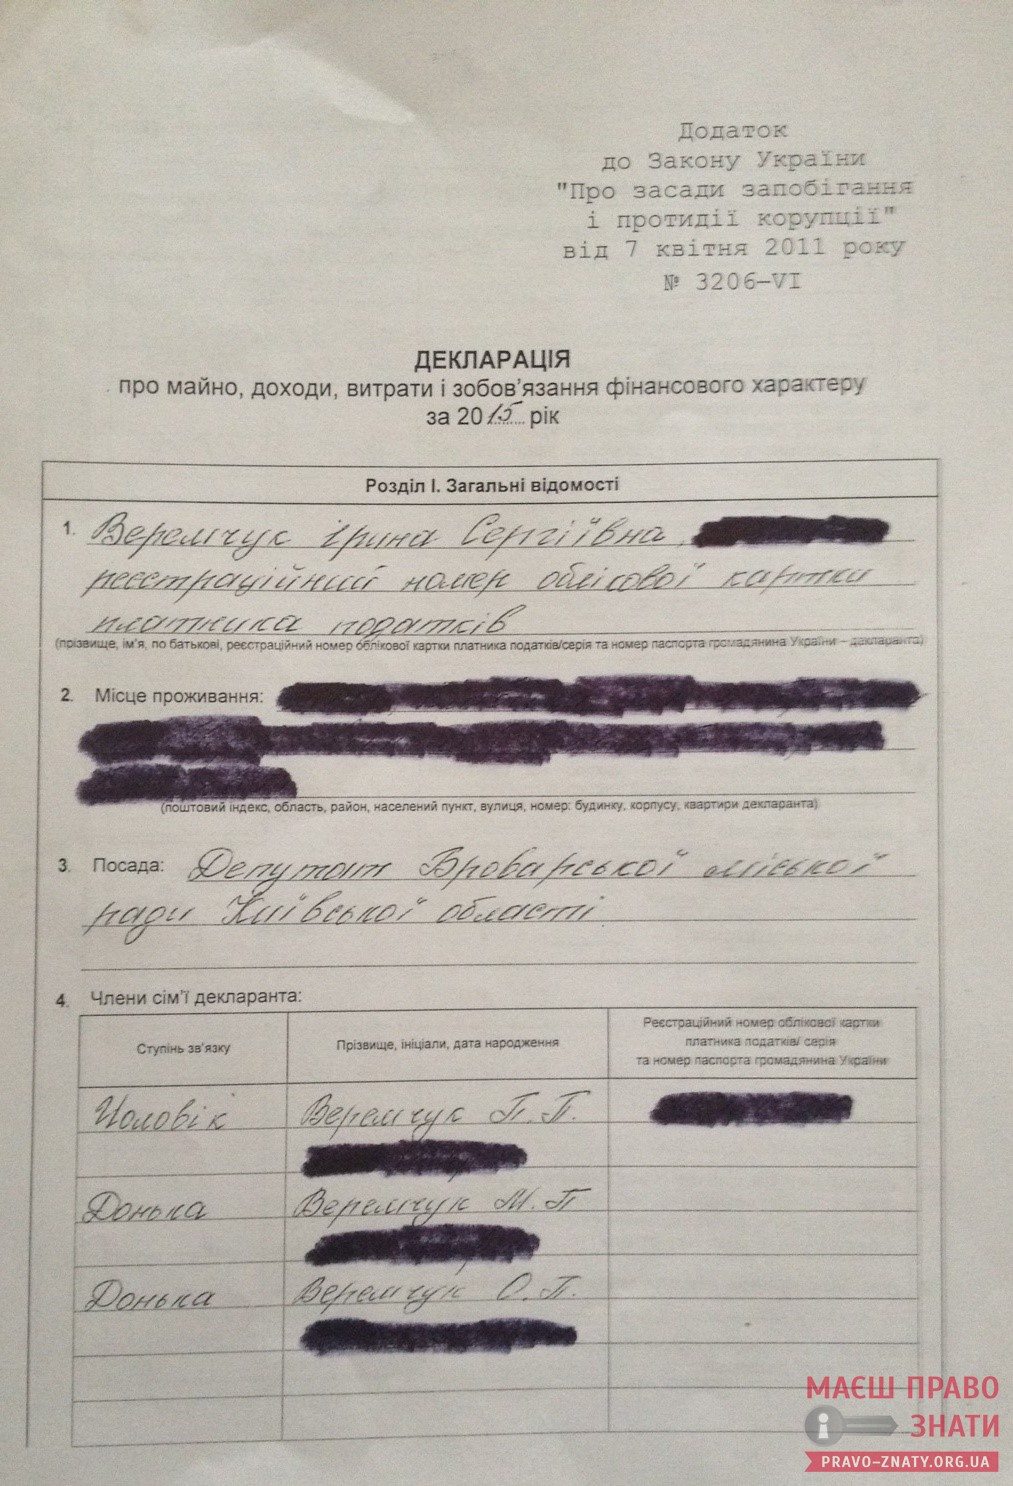 Додаток
до Закону України
"Про засади запобігання
і протидії корупції"
від 7 квітня 2011 року
№ 3206-VI
ДЕКЛАРАЦІЯ
про майно, доходи, витрати і зобов'язання фінансового характеру
за 2015 рік
Розділ І. Загальні відомості
1. Веремчук Ірина Сергіївна,
реєстраційний номер облікової картки
платника податків
(прізвище, ім'я, по батькові, реєстраційний номер облікової картки платника податків/серія та номер паспорта громадянина України – декларанта)
2. Місце проживання:
(поштовий індекс, область, район, населений пункт, вулиця, номер: будинку, корпусу, квартири декларанта)
3. Посада: Депутат Броварської міської
ради Київської області
4. Члени сім'ї декларанта:
Ступінь зв'язку
Прізвище, ініціали, дата народження
Реєстраційний номер облікової картки
платника податків/ серія
та номер паспорта громадянина України
Чоловік Веремчук П.П.
Донька Веремчук М.П
Донька Веремчук О.П.
МАЄШ ПРАВО
ЗНАТИ
PRAVO-ZNATY.ORG.UA